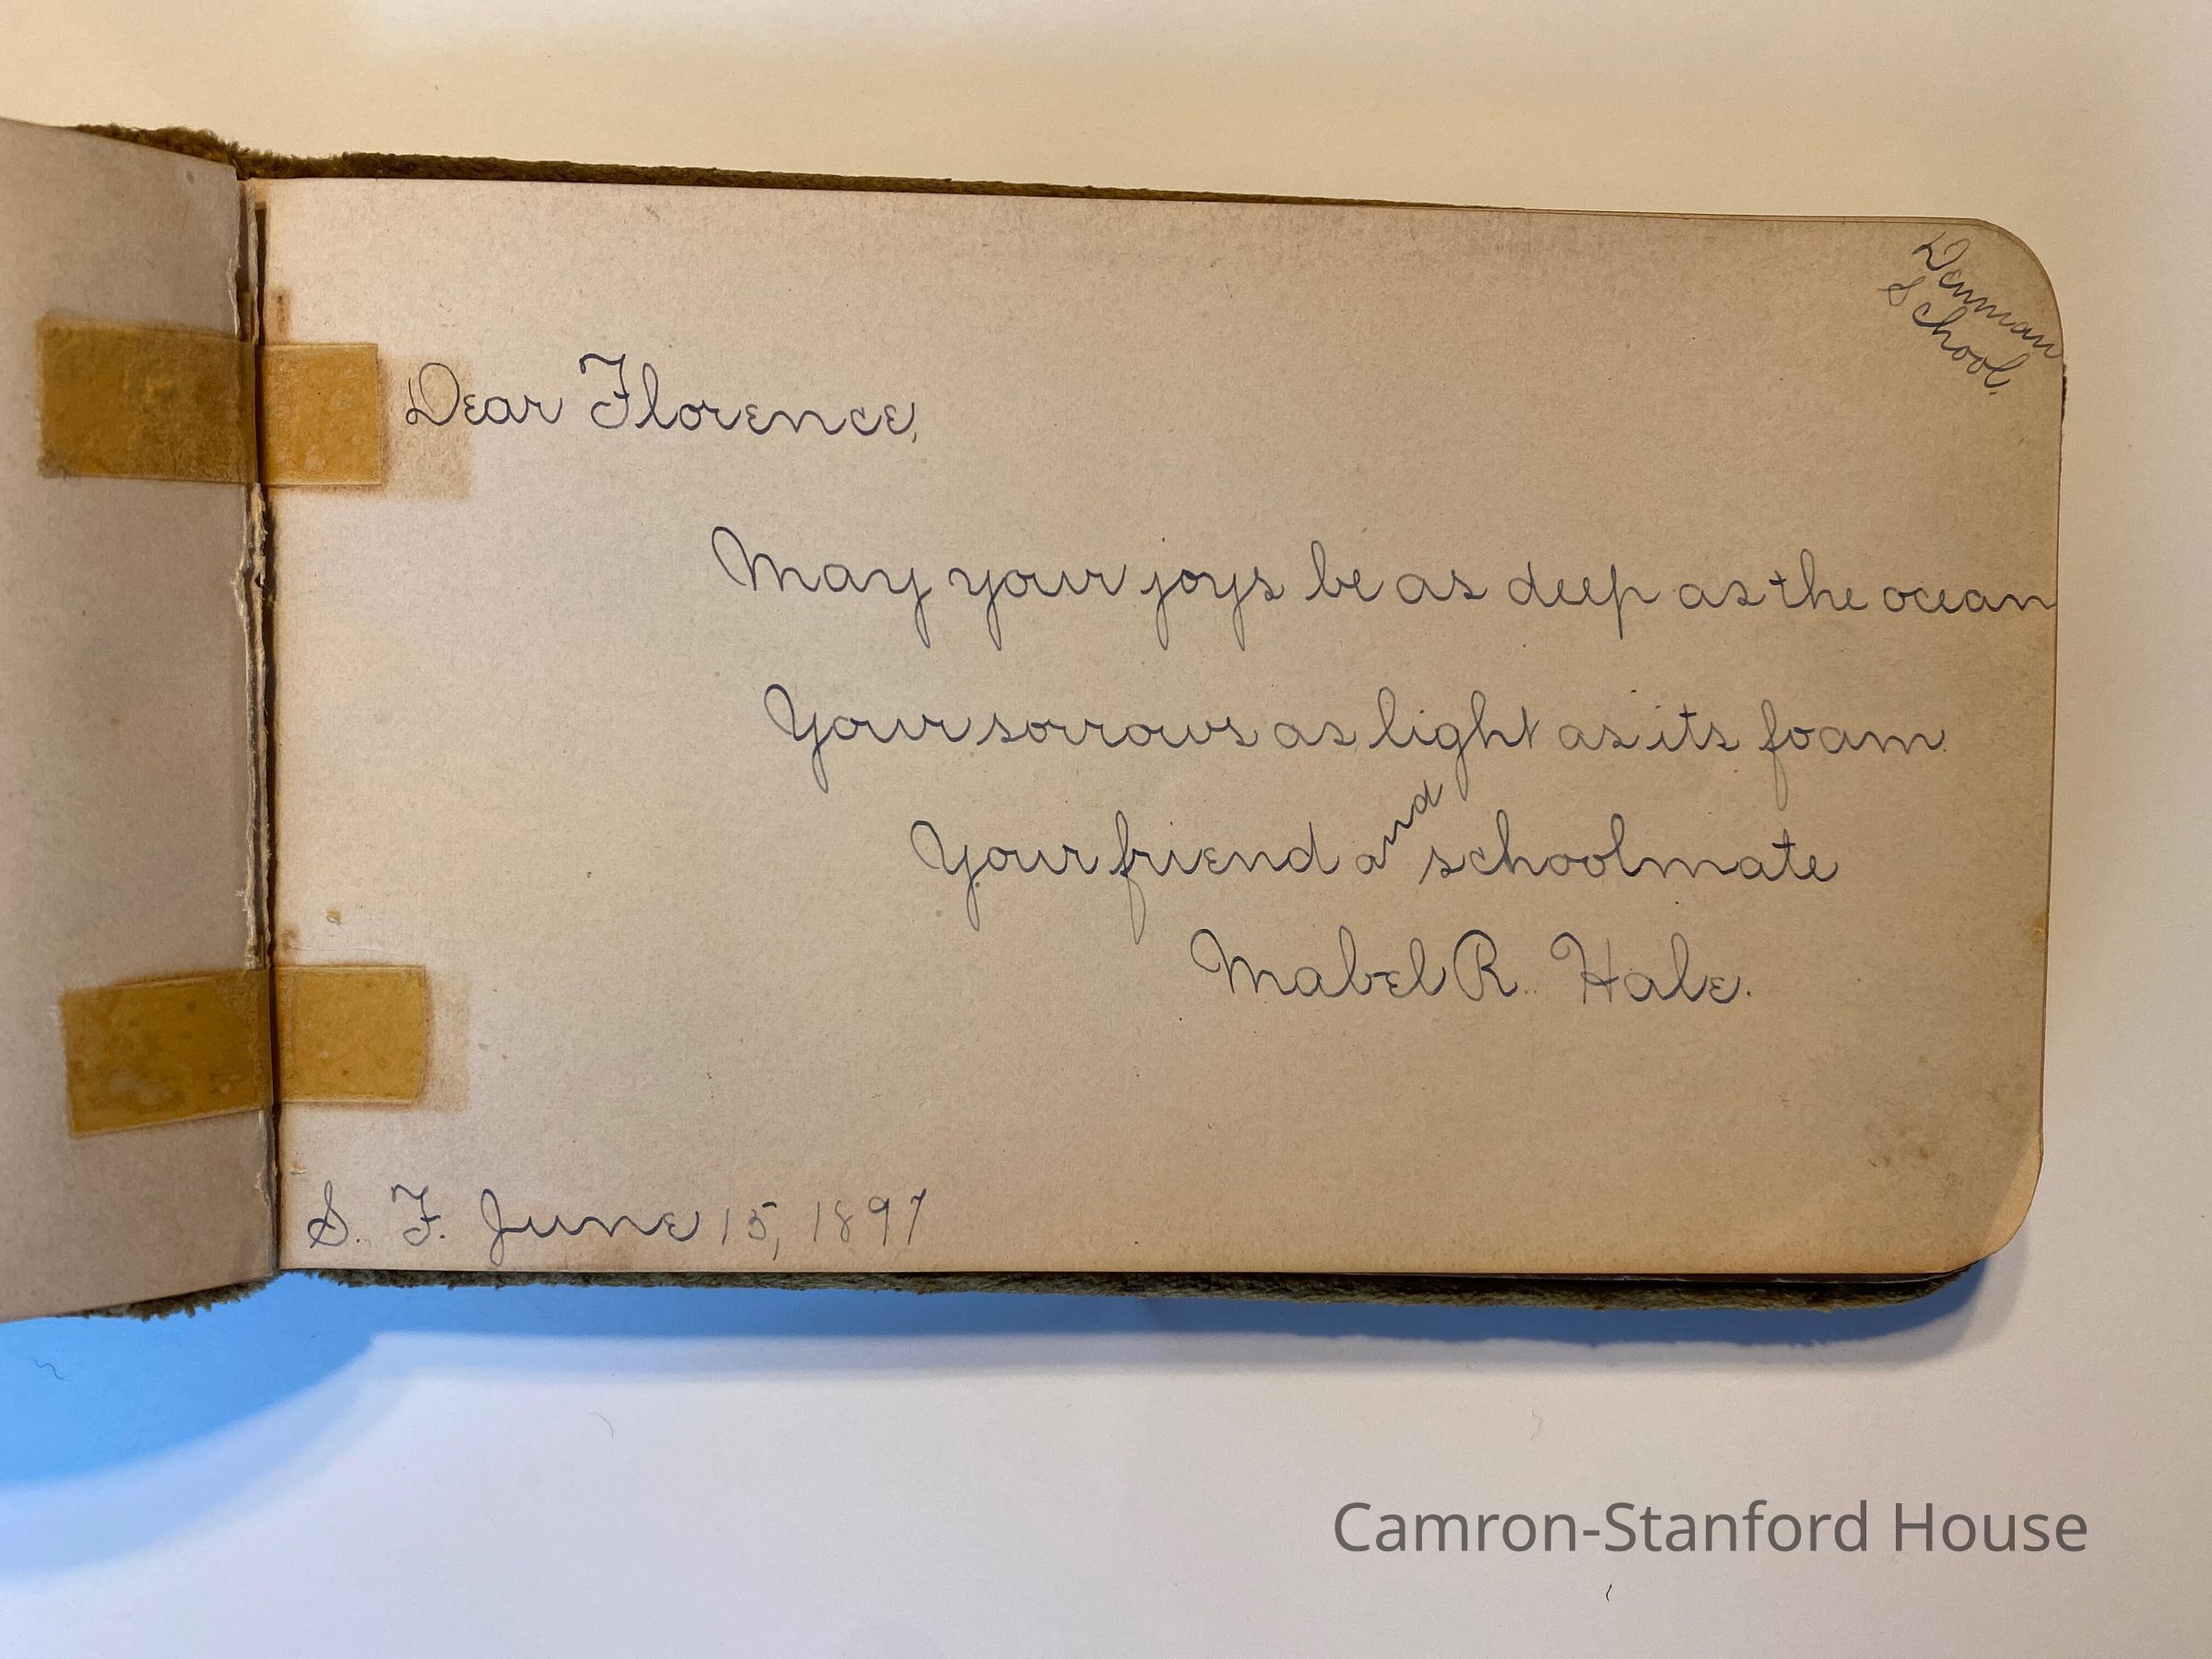 Denman
School.
Dear Florence,
May your joys be as deep as the ocean
Your sorrows as light as its foam.
Your friend and schoolmate
Mabel R. Hale.
S. F. June 15, 1897
Camron-Stanford House